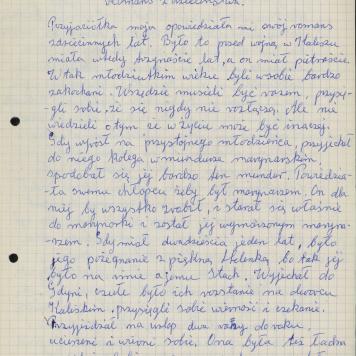 Romans z dzieciństwa.
Przyjaciółka moja opowiedziała mi swój romans
z dziecinnych lat. Było to przed wojną, w Kaliszu
miała wtedy trzynaście lat, a on miał pietnaście.
W tak młodziutkim wieku byli w sobie bardzo
zakochani. Wszędzie musieli być razem, przysię-
gli sobie, że się nigdy nie rozłączą. Ale nie
wiedzieli o tym że w życiu może być inaczej.
Gdy wyrósł na przystojnego młodzieńca, przyjechał
do niego kolega w mundurze marynarskim,
spodobał się jej bardzo ten mundur. Powiedzia-
ła swemu chłopcu żeby był marynarzem. On dla
niej by wszystko zrobił, i starał się właśnie
do marynarki i został jej wymarzonym maryna-
rzem. Gdy miał dwadzieścia jeden lat, było
jego pożegnanie z piękną Helenką bo tak jej
było na imię a jemu Stach. Wyjechał do
Gdyni, czułe było ich rozstanie na dworcu
Kaliskim, przysięgli sobie wierność i czekanie.
Przyjeżdżał na urlop dwa razy do roku,
ucieszeni i wierni sobie. Ona była też ładna